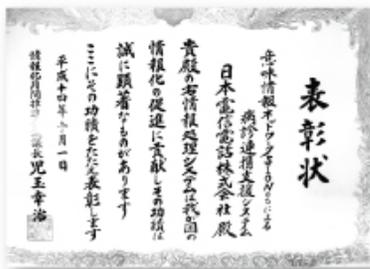 表彰状
意味情報ネットワークシステムによる
病診連携支援システム
日本電信電話株式会社 殿
貴殿の右情報処理システムは我が国の
情報化の促進に貢献しその功績は
誠に顕著なものがあります
ここにその功績をたたえ表彰します
平成十四年 月一日
情報化月間推 議長 児玉幸治